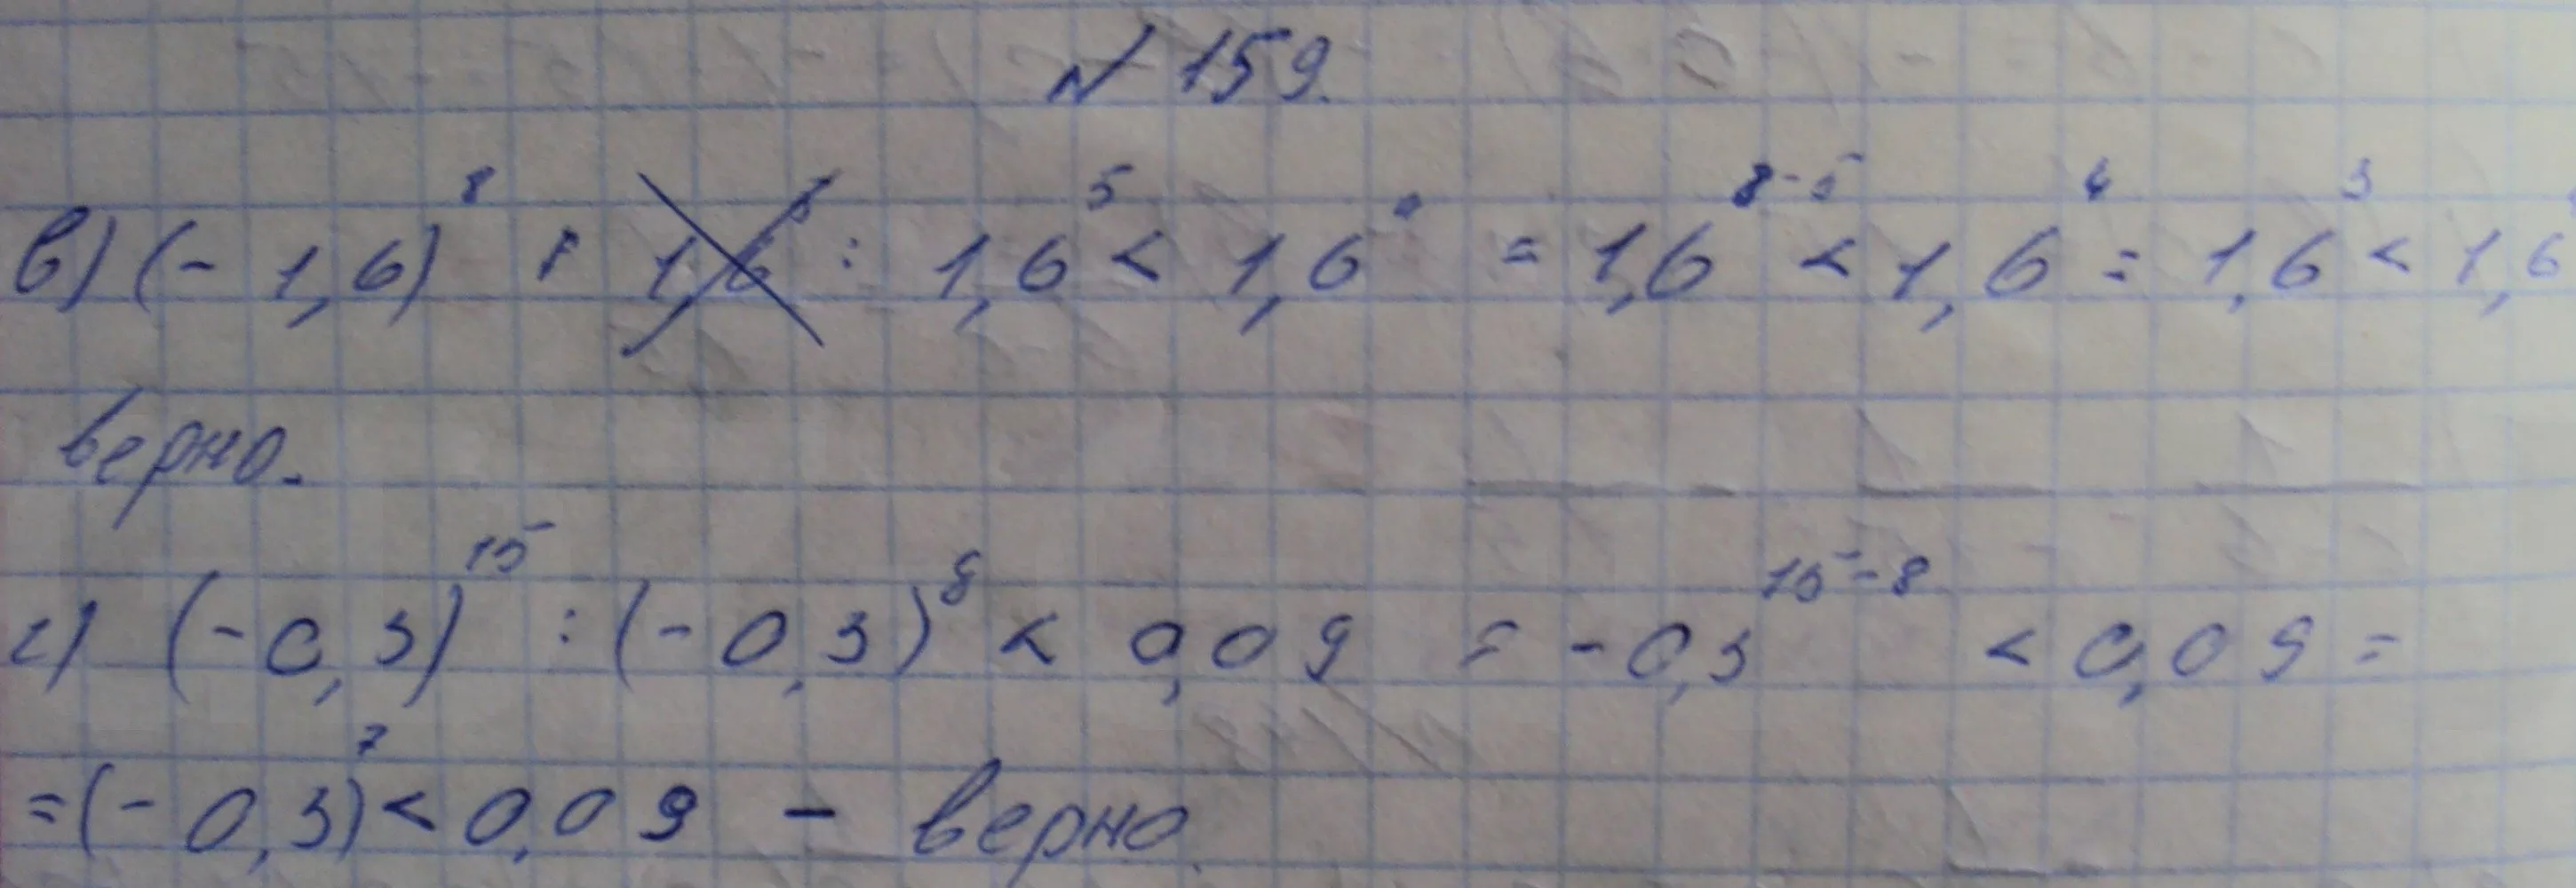 № 159.
в) (-1,6)⁸ : 1,6⁵ < 1,6 = 1,6⁸⁻⁵ < 1,6⁴ = 1,6³ < 1,6
верно.
г) (-0,3)¹⁵ : (-0,3)⁸ < 0,09 = -0,3¹⁵⁻⁸ < 0,09 =
= (-0,3)⁷ < 0,09 - верно.